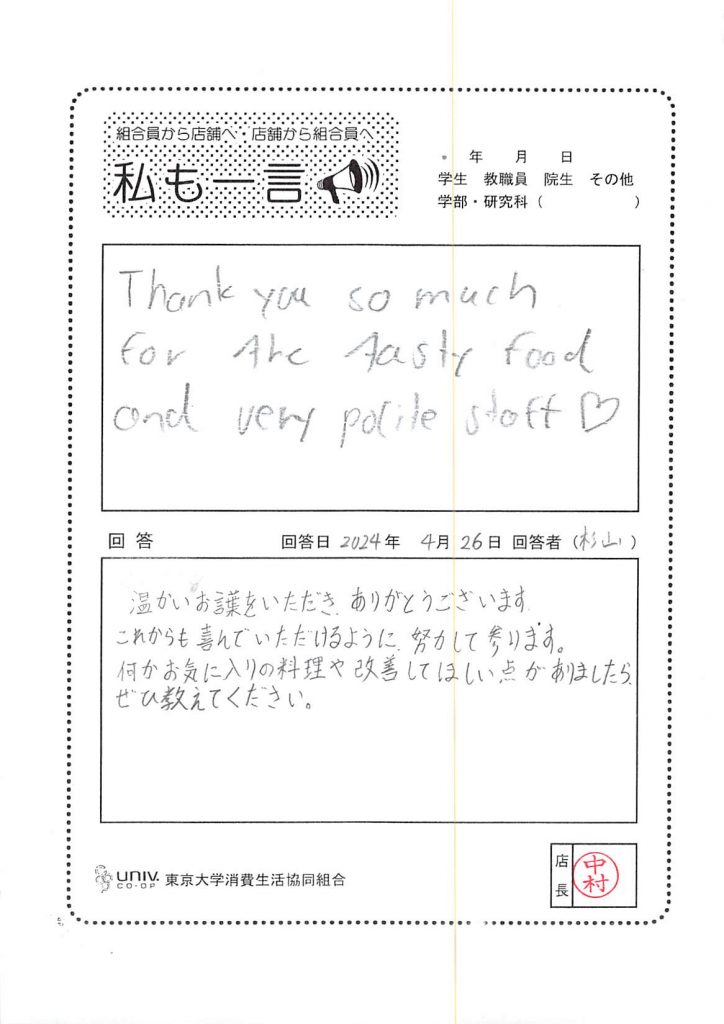 組合員から店舗へ・店舗から組合員へ
私も一言
年 月 日
学生 教職員 院生 その他
学部・研究科（ ）
Thank you so much
for the tasty food
and very polite staff♡
回答 回答日 2024年 4月 26日 回答者（杉山）
温かいお言葉をいただき、ありがとうございます。
これからも喜んでいただけるように、努力して参ります。
何かお気に入りの料理や改善してほしい点がありましたら、
ぜひ教えてください。
UNIV. CO-OP 東京大学消費生活協同組合
店長 中村